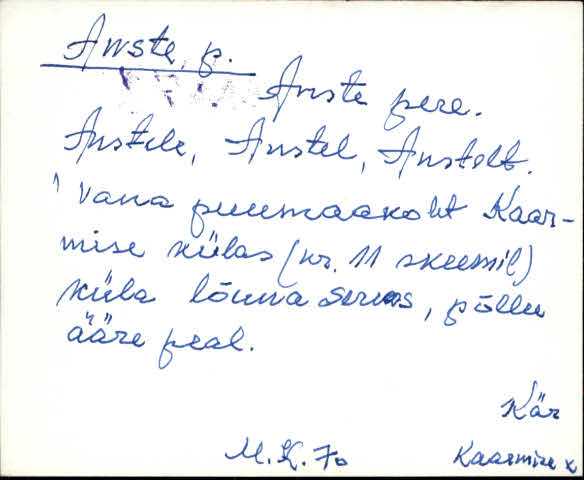 Anste, p.
Anste pere.
Anstele, Anstel, Anstelt.
Vana puumaakoht Kaar-
mise külas (nr. 11 skeemil)
küla lõuna servas, põllu
ääre peal.
Kär
M. K. 70
Kaarmise x